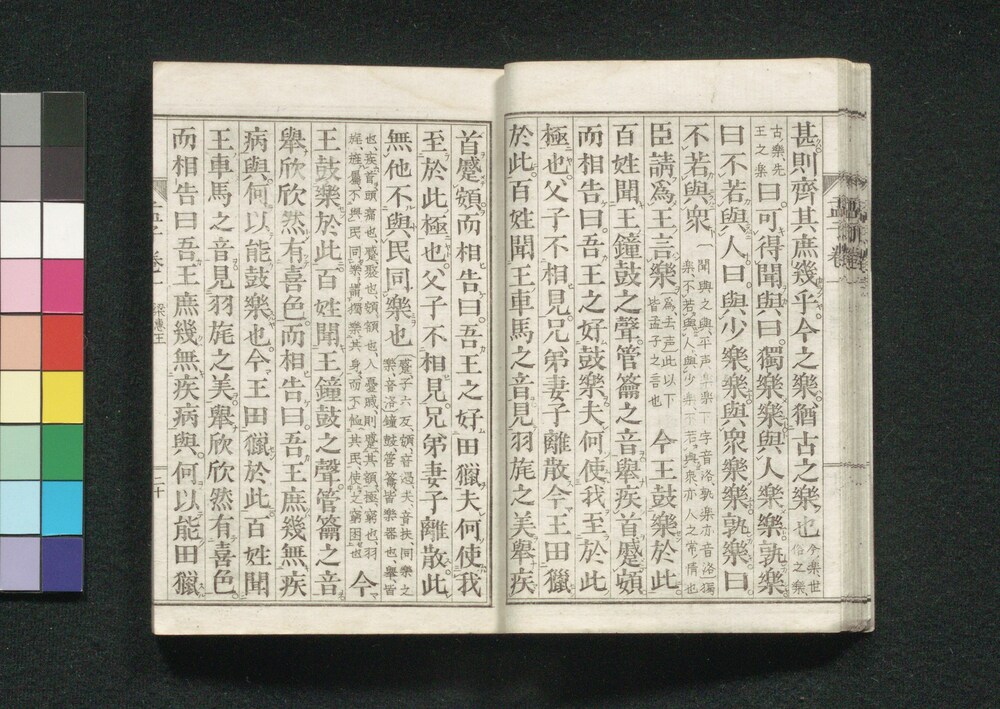 甚則齊其庶幾乎今之樂猶古之樂也今樂世俗之樂
古樂先王之樂曰可得聞與曰獨樂樂與人樂樂孰樂
曰不若與人曰與少樂樂與衆樂樂孰樂曰
不若與衆聞與之與平声樂樂下字音洛孰樂亦音洛獨樂不若與人與少樂不若與衆亦人之常情也
臣請爲王言樂爲去声此以下皆孟子之言也今王鼓樂於此
百姓聞王鐘鼓之聲管籥之音舉疾首蹙頞
而相告曰吾王之好鼓樂夫何使我至於此
極也父子不相見兄弟妻子離散今王田獵
於此百姓聞王車馬之音見羽旄之美舉疾
首蹙頞而相告曰吾王之好田獵夫何使我
至於此極也父子不相見兄弟妻子離散此
無他不與民同樂也蹙子六反頞音遏夫音扶同樂之樂音洛鐘鼓管籥皆樂器也舉皆
也疾首頭痛也蹙聚也頞額也人憂戚則蹙其額極窮也羽旄旌屬不與民同樂謂獨樂其身而不恤其民使之窮困也今
王鼓樂於此百姓聞王鐘鼓之聲管籥之音
舉欣欣然有喜色而相告曰吾王庶幾無疾
病與何以能鼓樂也今王田獵於此百姓聞
王車馬之音見羽旄之美舉欣欣然有喜色
而相告曰吾王庶幾無疾病與何以能田獵
卷一 梁惠王 二十